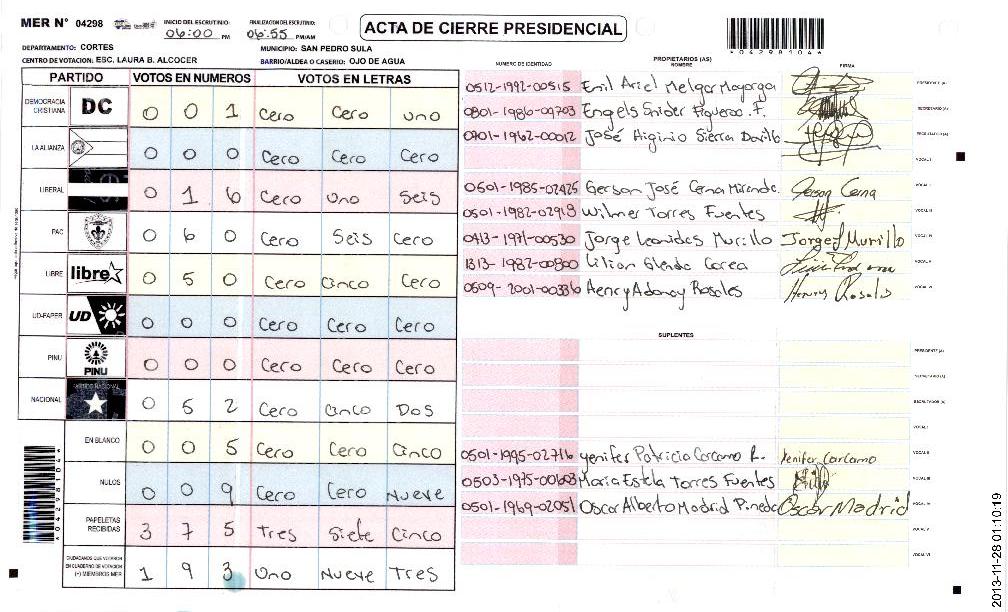 MER N° 04298
INICIO DEL ESCRUTINIO: 06:00 PM
FINALIZACION DEL ESCRUTINIO: 06:55 PM/AM
ACTA DE CIERRE PRESIDENCIAL
*04298104*
DEPARTAMENTO: CORTES
MUNICIPIO: SAN PEDRO SULA
CENTRO DE VOTACION: ESC. LAURA B. ALCOCER
BARRIO/ALDEA O CASERIO: OJO DE AGUA
PARTIDO VOTOS EN NUMEROS VOTOS EN LETRAS
DEMOCRACIA CRISTIANA DC 0 0 1 Cero Cero uno
LA ALIANZA 0 0 0 Cero Cero Cero
LIBERAL 0 1 6 Cero Uno Seis
PAC 0 6 0 Cero Seis Cero
LIBRE libre 0 5 0 Cero Cinco Cero
UD-FAPER UD 0 0 0 Cero Cero Cero
PINU PINU 0 0 0 Cero Cero Cero
NACIONAL PARTIDO NACIONAL 0 5 2 Cero Cinco Dos
EN BLANCO 0 0 5 Cero Cero Cinco
NULOS 0 0 9 Cero Cero Nueve
PAPELETAS RECIBIDAS 3 7 5 Tres Siete Cinco
CIUDADANOS QUE VOTARON EN CUADERNO DE VOTACION (+) MIEMBROS MER 1 9 3 Uno Nueve Tres
*04298104*
NUMERO DE IDENTIDAD PROPIETARIOS (AS) NOMBRE FIRMA
0512-1992-00515 Emil Ariel Melgar Mayorga PRESIDENTE (A)
0801-1986-09703 Engels Snider Figueroa. F. SECRETARIO (A)
0901-1962-00012 José Higinio Sierra ESCRUTADOR (A)
VOCAL I
0501-1985-02425 Gerson José Cerna Miranda Gerson Cerna VOCAL II
0501-1982-02919 Wilmer Torres Fuentes VOCAL III
0413-1971-00530 Jorge Leonidas Murillo Jorge Murillo VOCAL IV
1313-1982-00800 Lilian Glenda Corea VOCAL V
0509-2001-00336 Henry Adonay Rosales Henry Rosales VOCAL VI
SUPLENTES
PRESIDENTE (A)
SECRETARIO (A)
ESCRUTADOR (A)
VOCAL I
0501-1995-02716 Yenifer Patricia Carcamo R. Yenifer Carcamo VOCAL II
0503-1975-00603 Maria Estela Torres Fuentes VOCAL III
0501-1969-02051 Oscar Alberto Madrid Pineda Oscar Madrid VOCAL IV
VOCAL V
VOCAL VI
2013-11-28 01:10:19